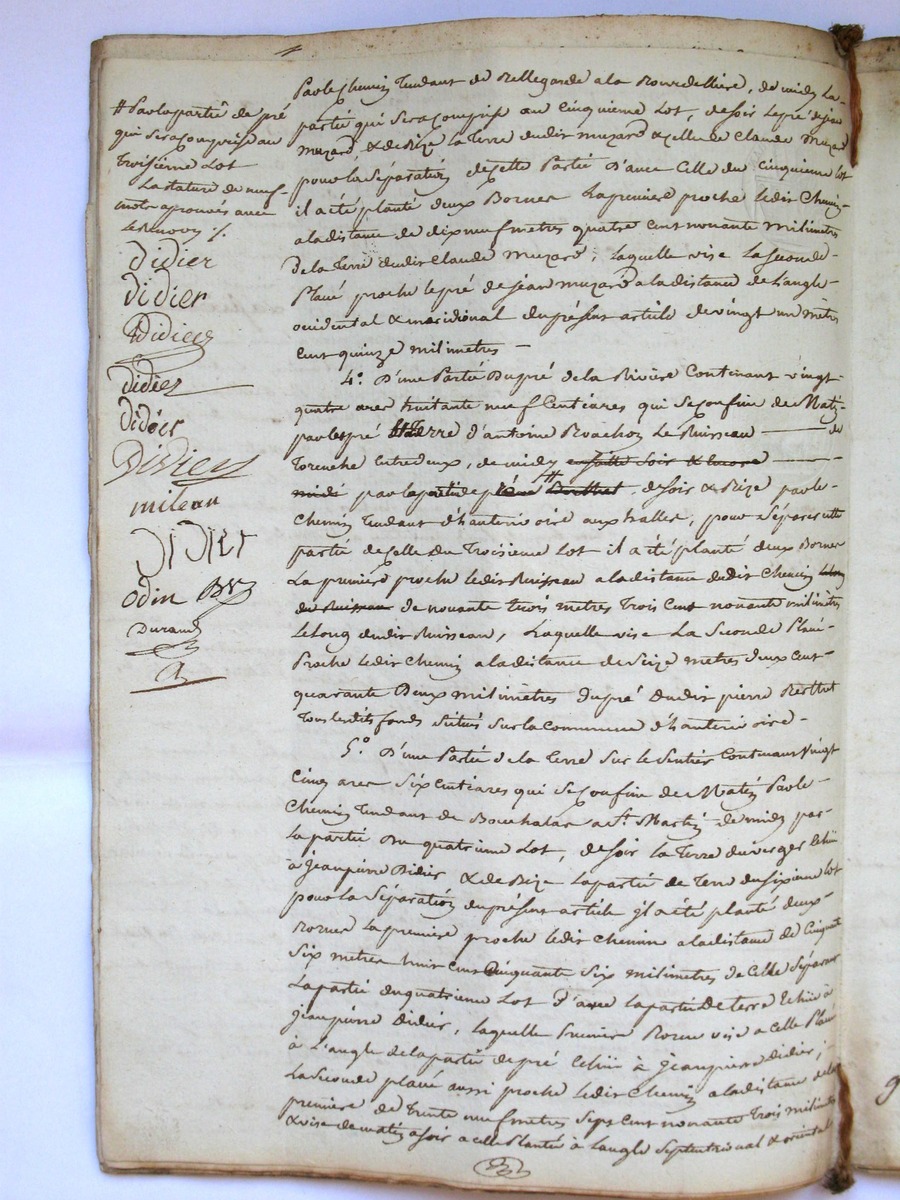 # Par la partie de pré
qui sera comprise au
troisième Lot
La rature de neuf
mots aprouvés avec
le Renvoy ./.
didier
Didier
Didier
didier
Didier
Didier
milean
DIDIER
odin
Durand
Par le Chemin tendant de Bellegarde a la Bourdelliere, de midy La-
partie qui sera comprise au cinquieme Lot, de soir Le pré de jean
Muzard, & de Bize la Terre dudit muzard & celle de Claude Muzard
pour la Séparation de cette Partie d'avec Celle du cinquieme lot
il a été planté deux Bornes La premiere proche ledit Chemin
a la distance de dix neuf metres quatre cent nonante milimetres
De la Terre dudit Claude Muzard, laquelle vise La seconde
Planté proche le pré de jean muzard a la distance de L'angle
occidental & meridional du présent article de vingt un metres
cent quinze milimetres —
4.º D'une Partie Du pré de la Riviere Contenant vingt
quatre ares huitante neuf Centiares qui se confine de Matin
par le pré Terre d'antoine Roachon Le Ruisseau — de
Torenche Entredeux, de midy
par la partie de pré # de soir & Bize par le
Chemin Tendant d'hauterivoire aux halles, pour Séparer cette
partie de Celle Du Troisieme Lot il a été planté deux Bornes
La premiere proche ledit Ruisseau a la distance dudit Chemin
du Ruisseau de nonante trois metres Trois Cent nonante milimetres
Le long dudit Ruisseau, Laquelle vise La Seconde Planté
Proche ledit Chemin a la distance de Seize metres deux cent
quarante Deux milimetres du pré dudit pierre Berthet
Tous lesdits fonds Situés sur la Commune d'hauterivoire —
5.º D'une Partie de la Terre Sur le Sentier Contenant Vingt
Cinq ares Six Centiares qui se confine de Matin Par le
Chemin Tendant de Bouchalas a St. Martin de midy par
La partie Du quatrieme Lot, de soir la Terre du verger Echüe
à Jeanpierre Didier & de Bize La partie de Terre du sixieme lot
pour la Séparation du présent article il a été planté deux
Bornes La premiere proche ledit chemin a la distance de Cinquante
Six metres huit cent Cinquante six milimetres de Celle Séparant
La partie du quatrieme Lot d'avec la partie De terre Echüe à
Jeanpierre Didier, laquelle premiere Borne vise a Celle Planté
à L'angle de la partie de pré Echüe à Jeanpierre Didier,
La seconde planté aussi proche ledit Chemin a la distance de la
premiere de Trente neuf metres Sept cent nonante Trois milimetres
& vise de matin a soir a celle Plantée à L'angle Septentrional & oriental